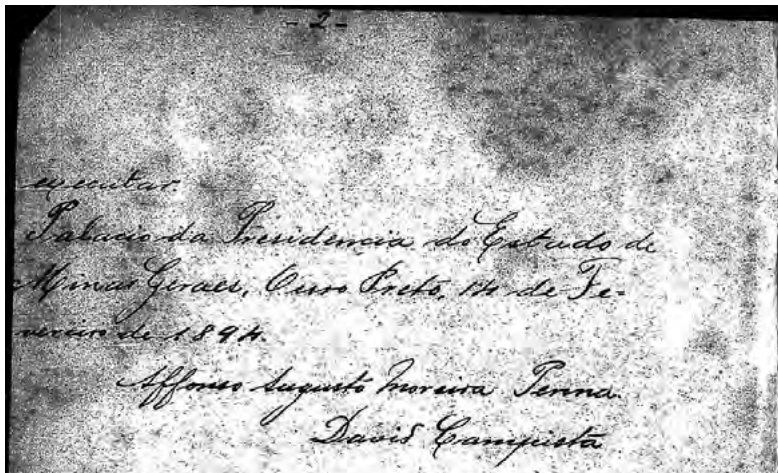 - 2 -
executar.
Palacio da Presidencia do Estado de
Minas Geraes, Ouro Preto, 14 de Fe-
vereiro de 1894.
Affonso Augusto Moreira Penna.
David Campista